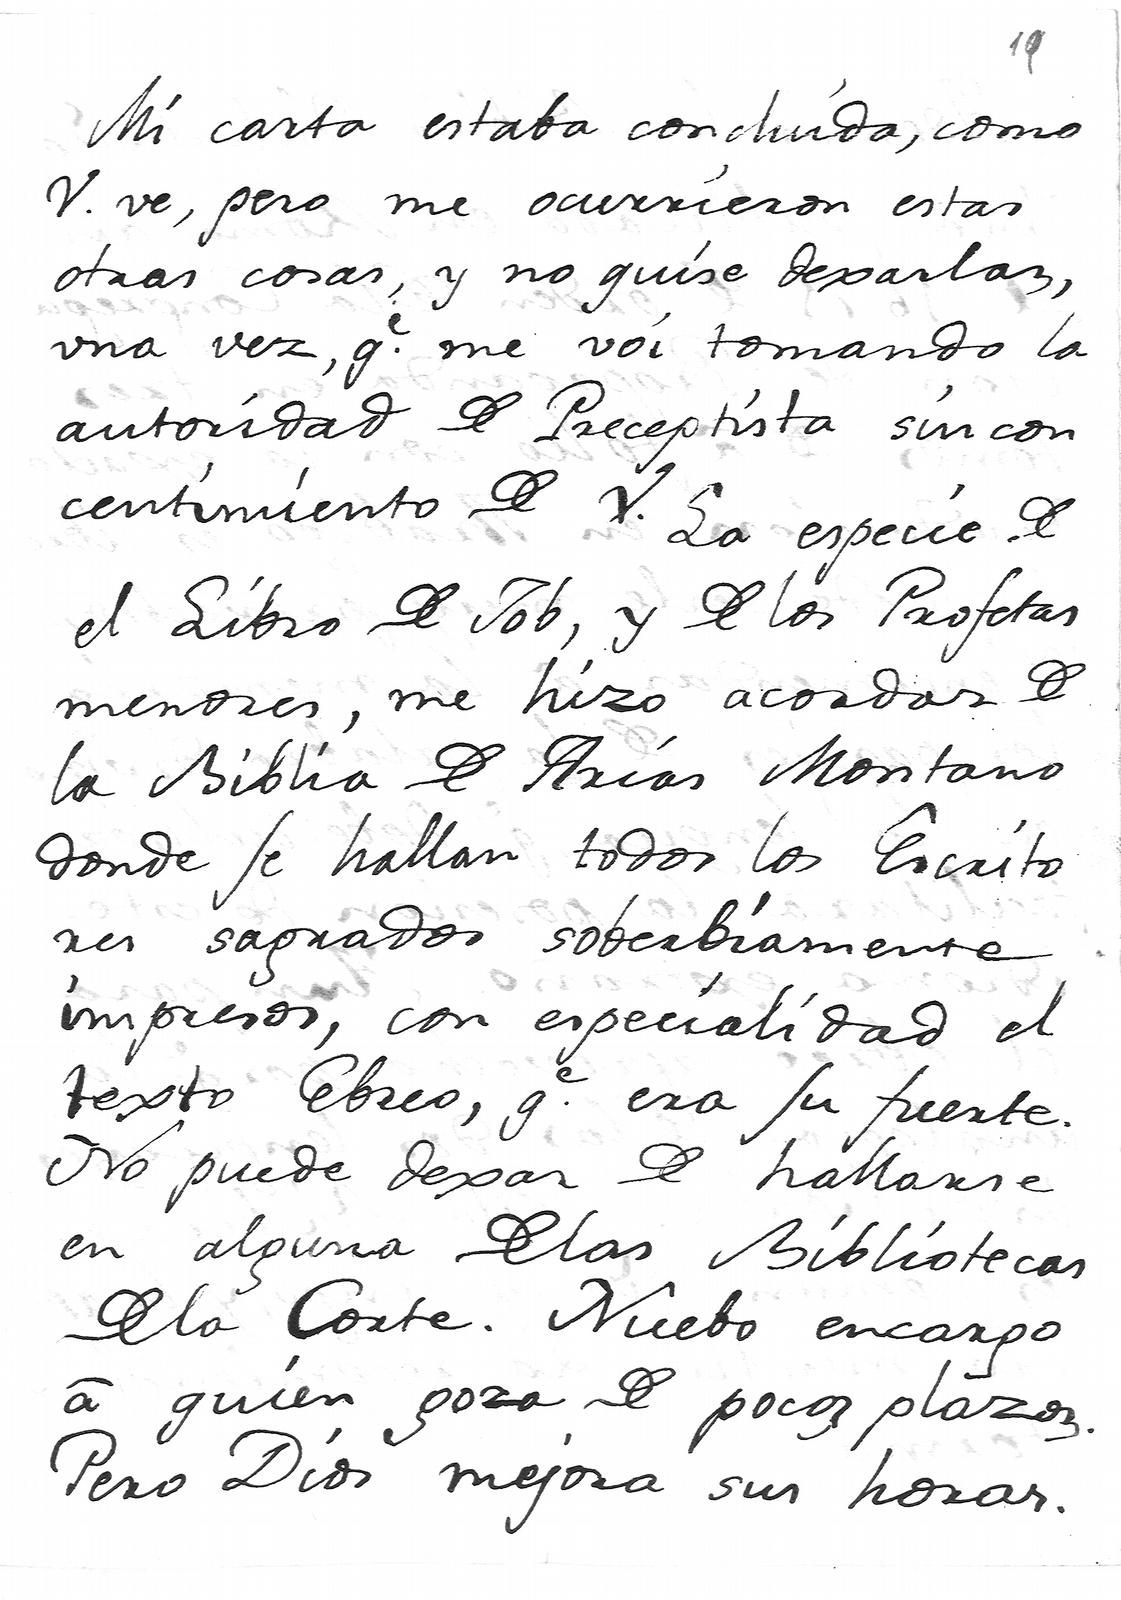 19
Mi carta estaba concluída, como
V. ve, pero me ocurrieron estas
otras cosas, y no quise dexarlas,
vna vez, q.e me vói tomando la
autoridad de Preceptista sin con
centimiento de V. La especie de
el Libro de Job, y de los Profetas
menores, me hizo acordar de
la Biblia de Arias Montano
donde se hallan todos los Escrito
res sagrados soberbiamente
impresos, con especialidad el
texto Ebreo, q.e era su fuente.
No puede dexar de hallarse
en alguna delas Bibliotecas
dela Corte. Nuebo encargo
ā quien goza de pocos plāzos.
Pero Dios mejora sus horas.